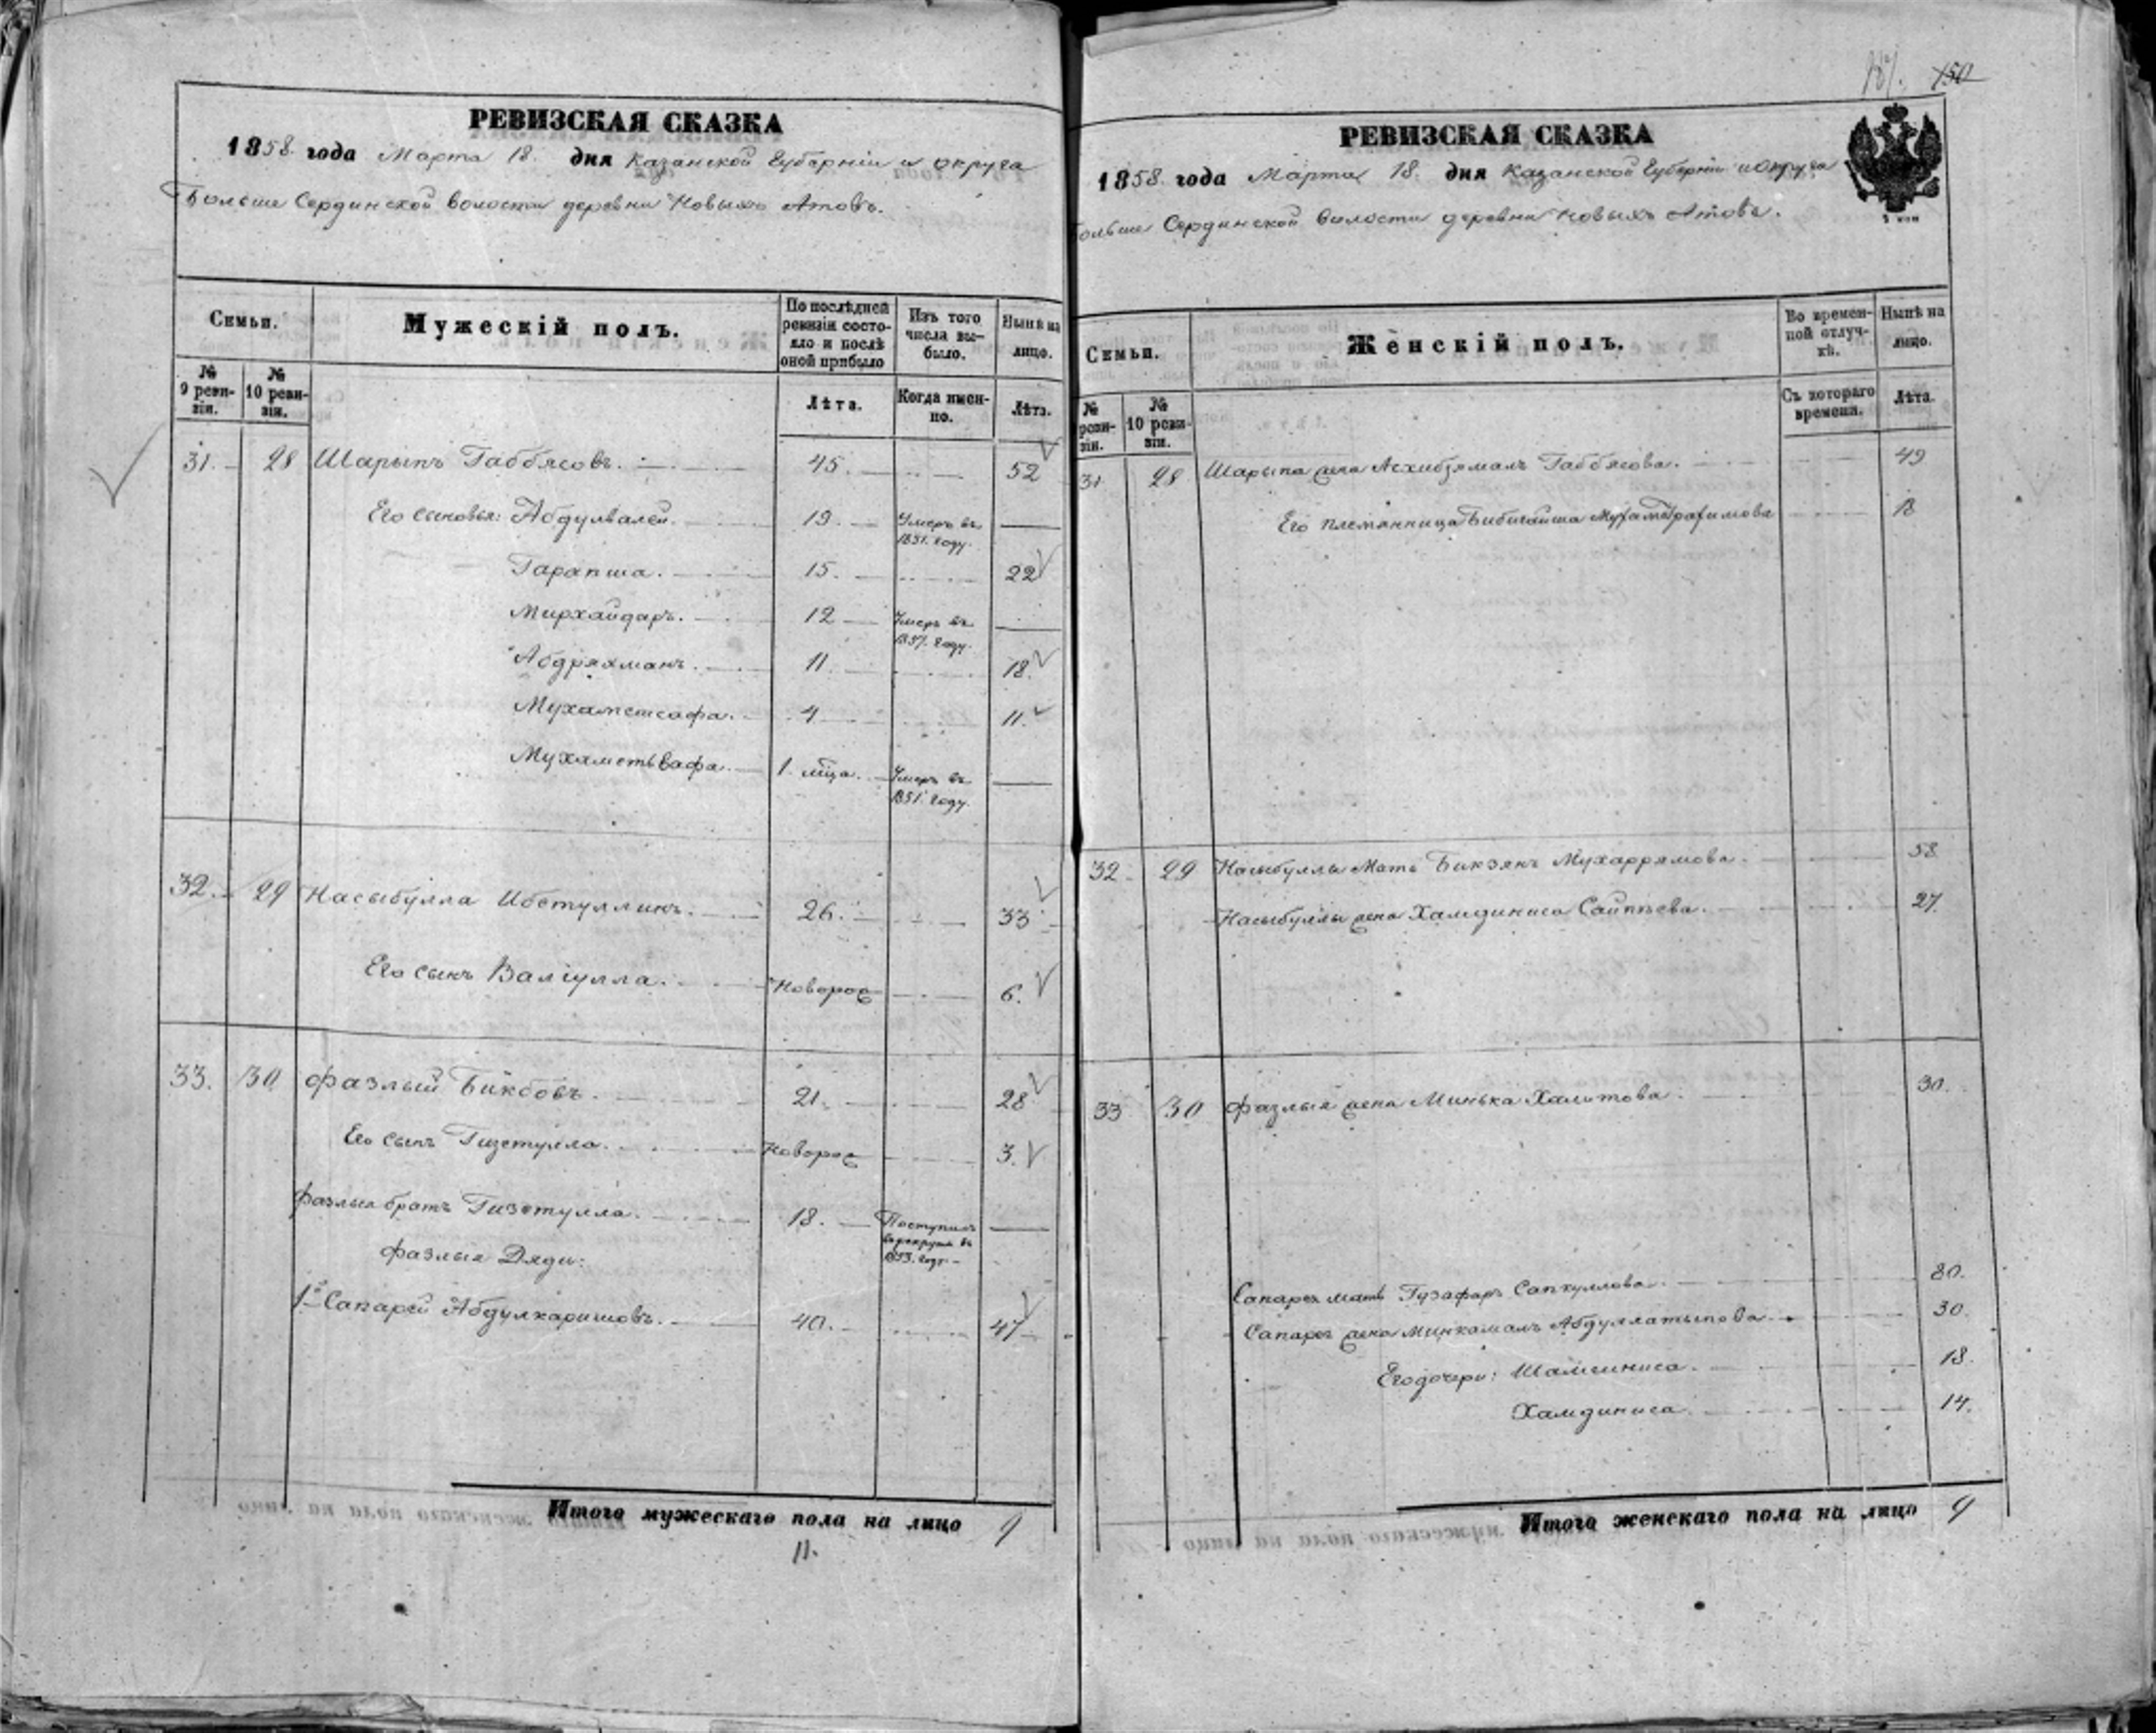 РЕВИЗСКАЯ СКАЗКА
1858. года Марта 18. дня Казанской Губерніи и округа
Больше Сердинской волости деревни Новыхъ Атовъ.
Семьи.
Мужескій полъ.
По послѣдней ревизіи состояло и послѣ оной прибыло
Изъ того числа выбыло.
Нынѣ на лицо.
№ 9 ревизіи.
№ 10 ревизіи.
Лѣта.
Когда именно.
Лѣта.
31. 28 Шарыпъ Габбясовъ. 45. 52
Его сыновья: Абдулвалей. 19. Умеръ въ 1851. году.
Гарапша. 15. 22
Мирхайдаръ. 12 Умеръ въ 1857. году.
Абдряхманъ. 11. 18.
Мухаметсафа. 4 11.
Мухаметьвафа. 1. мца. Умеръ въ 1851. году.
32. 29 Насыбулла Ибетуллинъ. 26. 33
Его сынъ Валіулла. Новорож 6.
33. 30 Фазлый Бикбовъ. 21. 28
Его сынъ Гизетулла. Новорож 3.
Фазлыя братъ Гизетулла. 18. Поступилъ въ рекруты въ 1853. году.
Фазлыя Дяди:
1й Сапарей Абдулкаримовъ. 40. 47
Итого мужескаго пола на лицо 9
11.
150
РЕВИЗСКАЯ СКАЗКА
1858. года Марта 18. дня Казанской Губерніи и округа
Больше Сердинской волости деревни Новыхъ Атовъ.
Семьи.
Женскій полъ.
Во временной отлучкѣ.
Нынѣ на лицо.
№ ревизіи.
№ 10 ревизіи.
Съ котораго времени.
Лѣта.
31 28 Шарыпа жена Асхибзямалъ Габбясова. 49
Его племянница Бибигайша Мухаметрахимова 13
32. 29 Насыбуллы Мать Бикзянъ Мухаррямова. 58
Насыбуллы жена Хамдиниса Сайпѣева. 27.
33 30 Фазлыя жена Минька Халитова. 30.
Сапарея мать Гузафаръ Сапкуллова. 80.
Сапарея жена Минкамалъ Абдуллатыпова. 30.
Его дочери: Шамсиниса. 18.
Хамдиниса. 14.
Итого женскаго пола на лицо 9